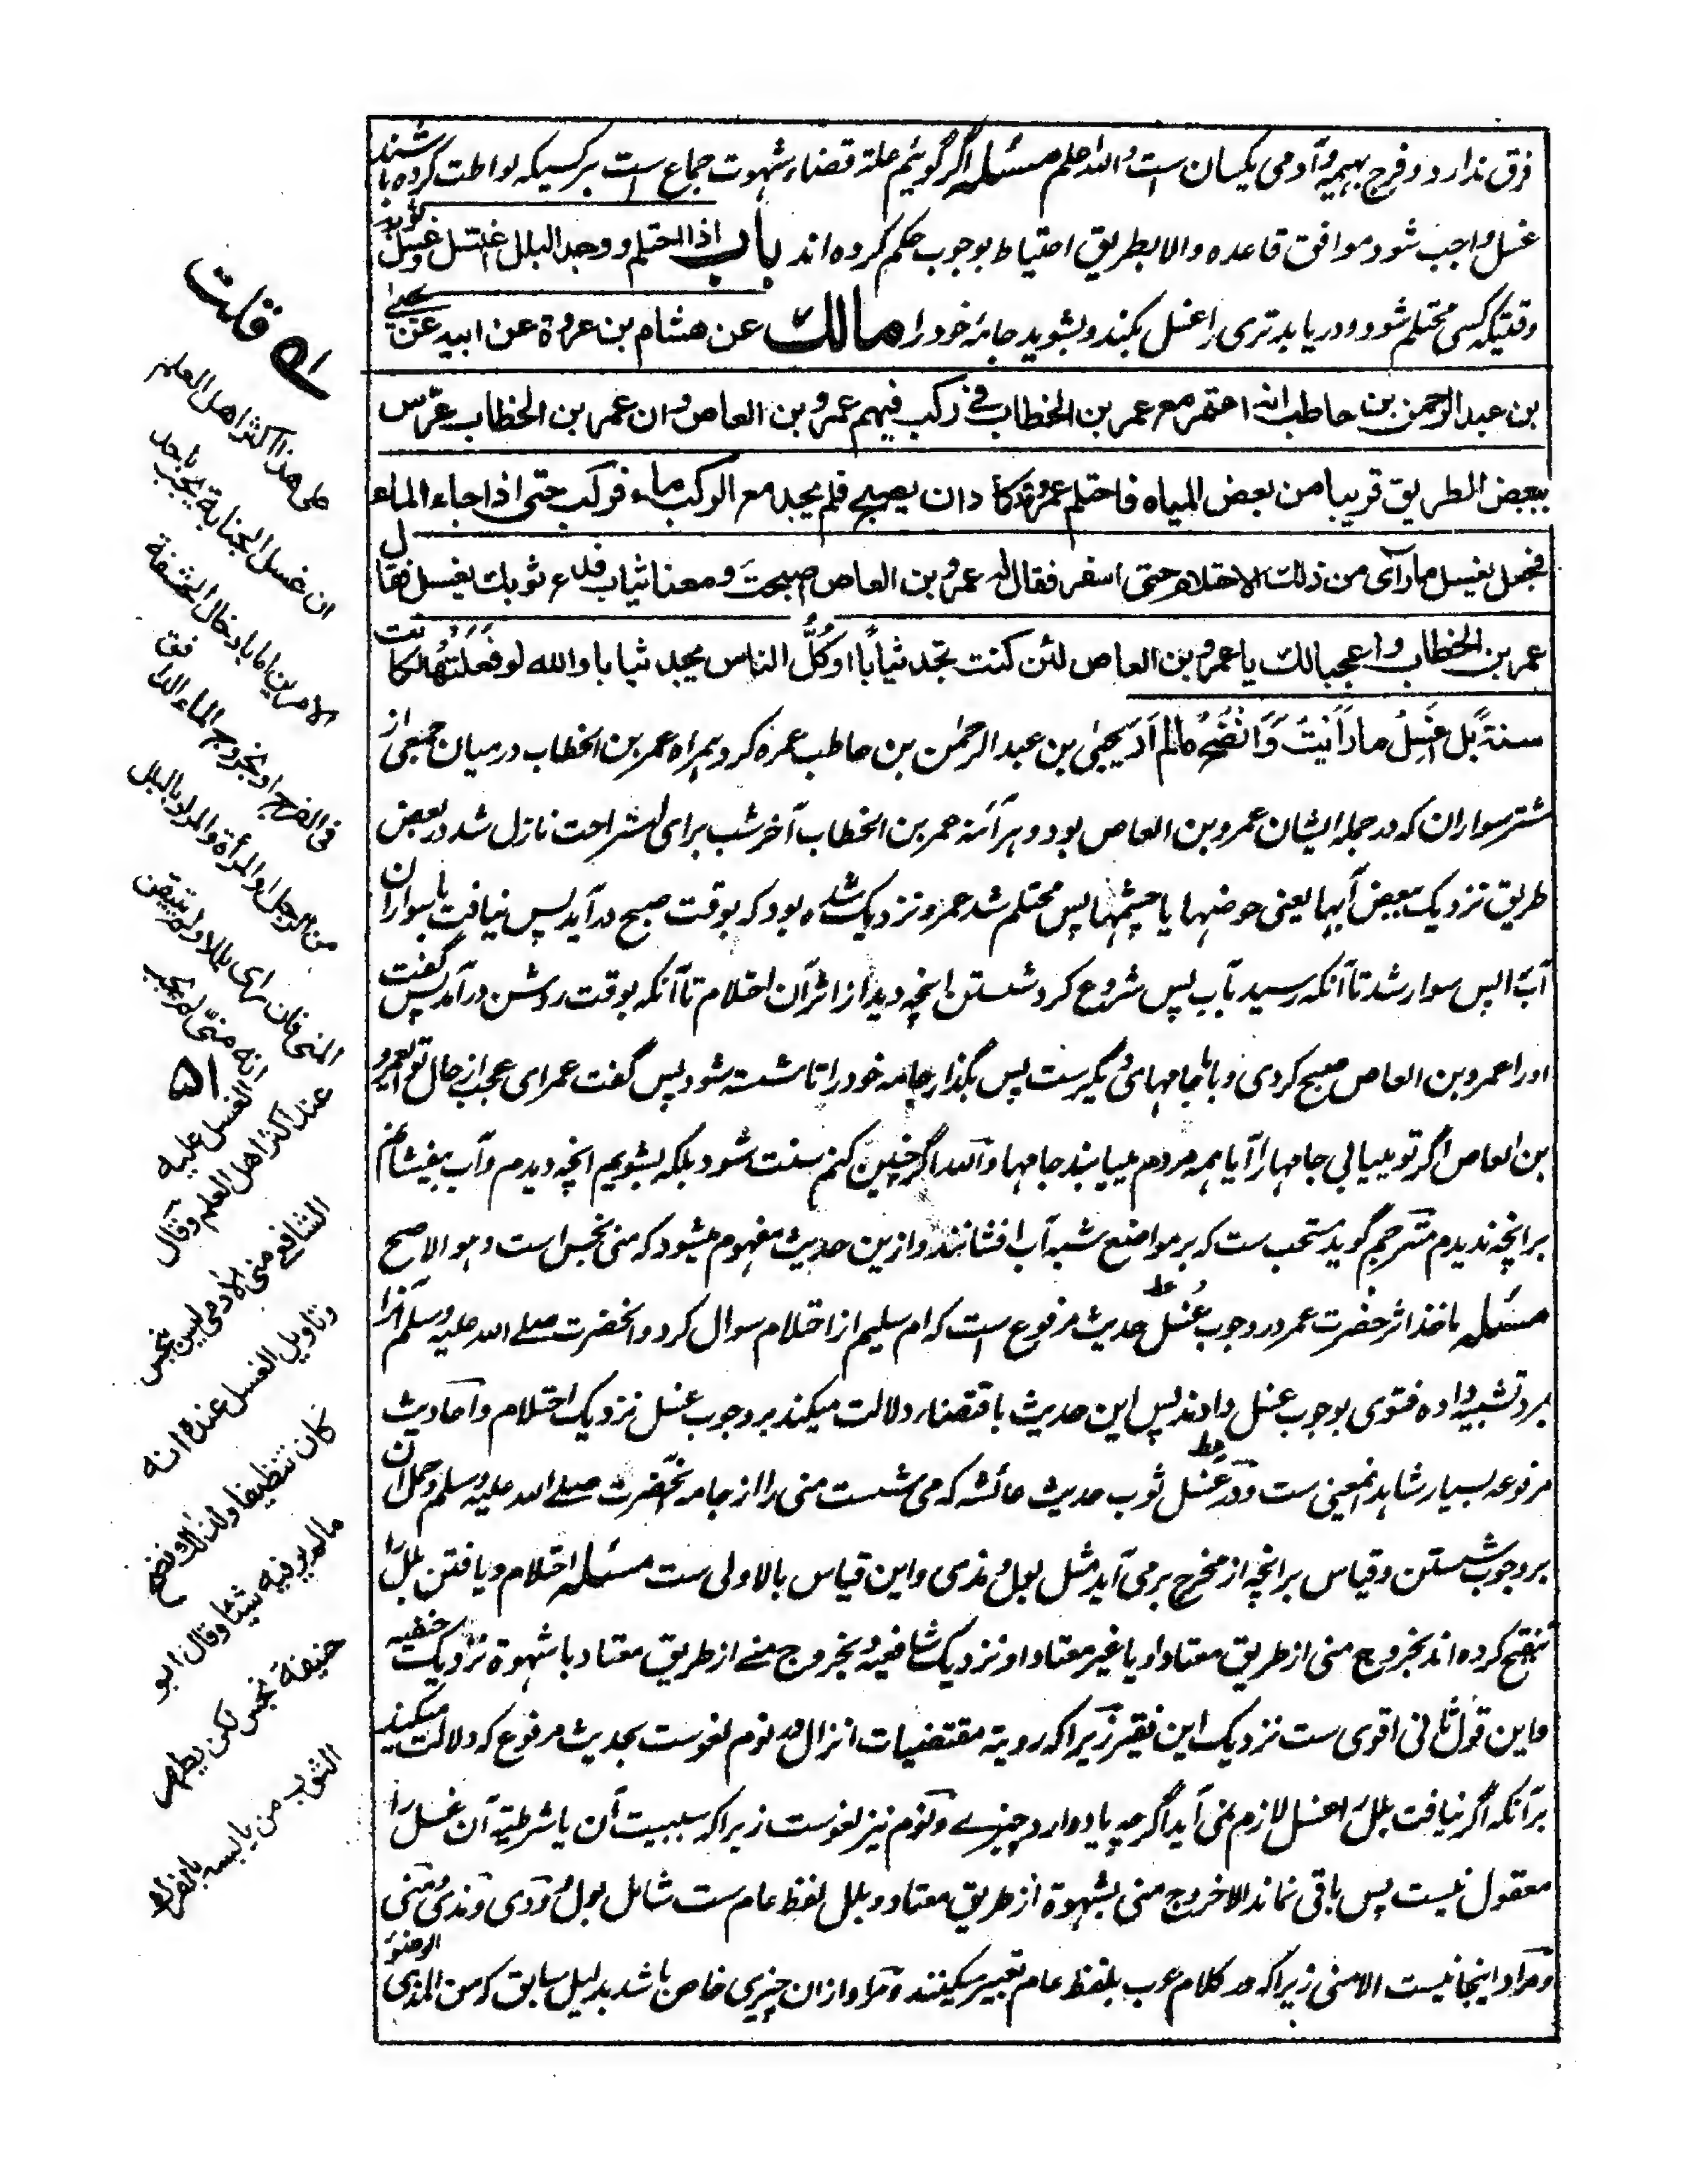 فرق ندارد و فرج بهیمه و آدمی یکسان است والله اعلم مسئله اگر گوئیم علة قضاء شهوت جماع است بر کسیکه لواطت کرده باشند
غسل واجب شود موافق قاعده والا بطریق احتیاط بوجوب حکم کرده اند باب اذا احتلم ووجد البلل اغتسل وغسل ثوبه
وقتیکه کسی محتلم شود و دریابد تری را غسل بکند و بشوید جامهٔ خود را مالك عن هشام بن عروة عن ابيه عن يحيى
بن عبد الرحمن بن حاطب انه اعتمر مع عمر بن الخطاب في ركب فيهم عمرو بن العاص وان عمر بن الخطاب عرّس
ببعض الطريق قريبا من بعض المياه فاحتلم عمر وقد كاد ان يصبح فلم يجد مع الركب ماء فركب حتى اذا جاء الماء
فجعل يغسل ما رآى من ذلك الاحتلام حتى اسفر فقال له عمرو بن العاص اصبحت ومعنا ثياب فدع ثوبك يغسل فقال
عمر بن الخطاب واعجبا لك يا عمرو بن العاص لئن كنت تجد ثيابًا اوكُلُّ الناس يجد ثيابا والله لو فعلتها لكانت
سنة بل اغسل ما رأيت وانضح ما لم ار یحییٰ بن عبد الرحمٰن بن حاطب عمره کرد همراه عمر بن الخطاب درمیان جمعی از
شتر سواران که در جمله ایشان عمرو بن العاص بود و هر آئنه عمر بن الخطاب آخر شب برای استراحت نازل شد در بعض
طریق نزدیک ببعض آبها یعنی حوضها یا چشمها پس محتلم شد عمر و نزدیک شده بود که بوقت صبح در آید پس نیافت با سواران
آب را پس سوار شد تا آنکه رسید بآب پس شروع کرد شستن انچه دید از اثر آن احتلام تا آنکه بوقت روشن درآمد پس گفت
او را عمرو بن العاص صبح کردی و با ما جامهای دیگر ست پس بگذار جامه خود را تا شسته شود پس گفت عمر ای عجب از حال تو ای عمرو
بن العاص اگر تو مییابی جامها را آیا همه مردم مییابند جامها والله اگر چنین کنم سنت شود بلکه بشویم انچه دیدم و آب بیفشانم
بر انچه ندیدم مترجم گوید مستحب ست که بر مواضع شبه آب افشانند و ازین حدیث مفهوم میشود که منی نجس است و هو الاصح
مسئله ماخذ اثر حضرت عمر در وجوب غُسل حدیث مرفوع است که ام سلیم از احتلام سوال کرد و آنحضرت صلے الله علیه وسلم آنرا
بمرد تشبیه داده فتوی بوجوب غسل دادند پس این حدیث باقتضاء دلالت میکند بر وجوب غسل نزدیک احتلام و احادیث
مرفوعه بسیار شاهد اینمعنی ست و در غَسل ثوب حدیث عائشه که می شست منی را از جامه آنحضرت صلے الله علیه وسلم و حمل آن
بر وجوب شستن و قیاس بر انچه از مخرج بر می آید مثل بول و مذی و این قیاس بالاولی ست مسئله احتلام و یافتن بلل را
تنقیح کرده اند بخروج منی از طریق معتاد او یا غیر معتاد او نزدیک شافعیه و بخروج منے از طریق معتاد با شهوة نزدیک حنفیه
و این قول ثانی اقوی ست نزدیک این فقیر زیرا که رویة مقتضیات انزال در نوم لغوست بحدیث مرفوع که دلالت میکند
بر آنکه اگر نیافت بلل را غسل لازم نمی آید اگر چه یاد دارد چیزے و نوم نیز لغوست زیرا که سببیت آن یا شرطیة آن غسل را
معقول نیست پس باقی نماند الا خروج منی بشهوة از طریق معتاد و بلل لفظ عام ست شامل بول و ودی و مذی و منی
و مراد اینجا نیست الا منی زیرا که در کلام عرب بلفظ عام تعبیر میکنند و مراد ازان چیزی خاص باشد بدلیل سابق که من المذی الوضوء
قلت
على هذا اكثر اهل العلم
ان غسل الجنابة يجب باحد
الامرين اما بادخال الحشفة
في الفرج او بخروج الماء الدافق
من الرجل او المرأة والمراد بالبلل
المني فان راى بللا ولم يتيقن
انه منيّ لم يجب الغسل عليه
عند اكثر اهل العلم وقال
الشافعي مني الآدمي ليس بنجس
وتاويل الغسل عنده انه
كان تنظيفا ولذلك نضح
ما لم ير فيه شيئا وقال ابو
حنيفة نجس لكن يطهر
الثوب من يابسه بالفرك